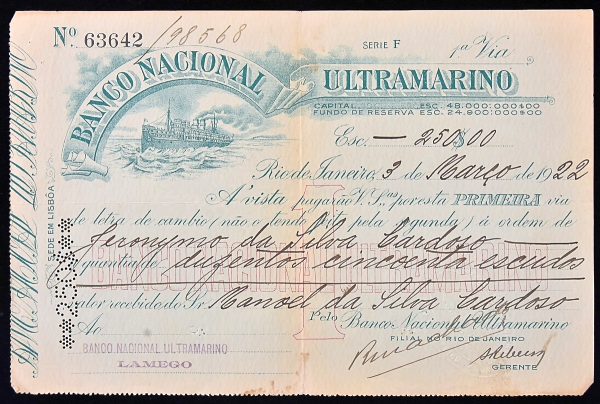 Nº 63642 198568
SERIE F 1ª Via
BANCO NACIONAL ULTRAMARINO
CAPITAL ESC. 48.000:000$00
FUNDO DE RESERVA ESC. 24.900:000$00
Esc. — 250$00
Rio de Janeiro, 3 de Março de 1922
A' vista pagarão V. S.ªs por esta PRIMEIRA via
de letra de cambio (não o tendo feito pela segunda) á ordem de
Jeronymo da Silva Cardoso
a quantia de duzentos cincoenta escudos
valor recebido do Sr. Manoel da Silva Cardoso
Ao Pelo Banco Nacional Ultramarino
BANCO NACIONAL ULTRAMARINO
LAMEGO
FILIAL NO RIO DE JANEIRO
GERENTE
SÉDE EM LISBÔA